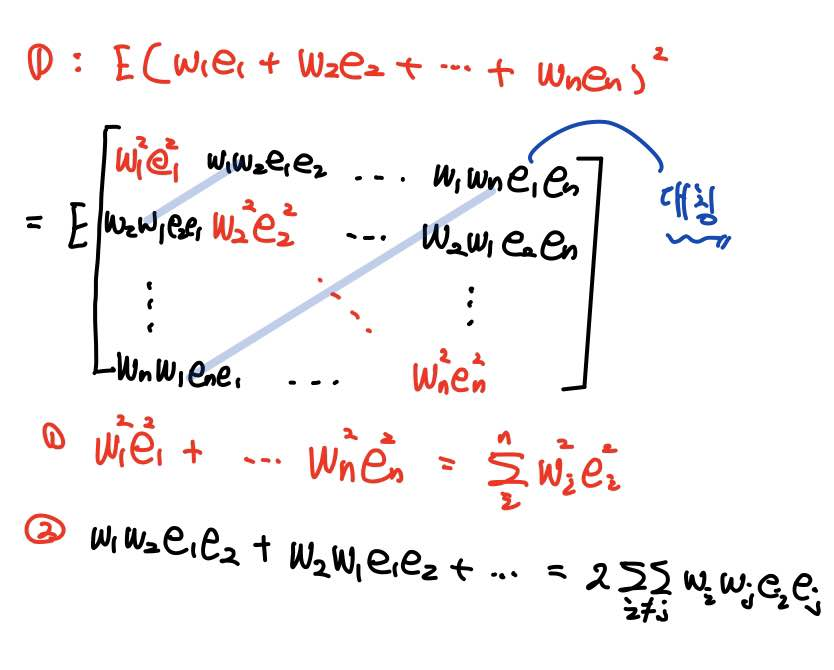 ① : E(w₁e₁ + w₂e₂ + ⋯ + wₙeₙ)²
w₁²e₁² w₁w₂e₁e₂ ⋯ w₁wₙe₁eₙ
대칭
= E w₂w₁e₂e₁ w₂²e₂² ⋯ w₂w₁e₂eₙ
⋮ ⋱ ⋮
wₙw₁eₙe₁ ⋯ wₙ²eₙ²
① w₁²e₁² + ⋯ wₙ²eₙ² = ∑ᵢⁿ wᵢ²eᵢ²
② w₁w₂e₁e₂ + w₂w₁e₁e₂ + ⋯ = 2∑∑ᵢ≠ⱼ wᵢwⱼeᵢeⱼ